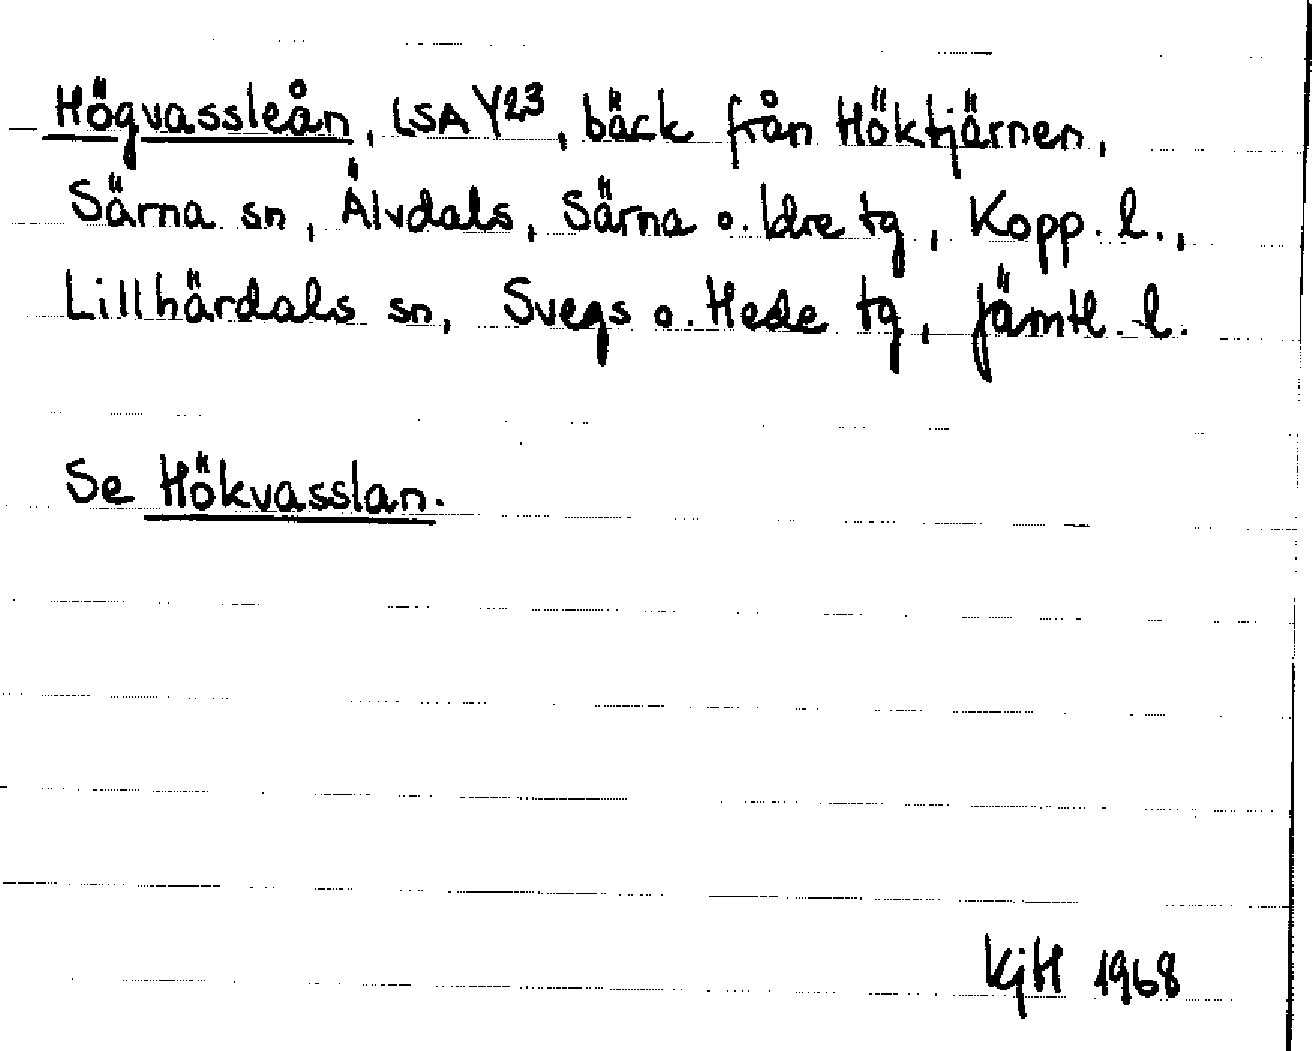 Högvassleån, LSA Y23, bäck från Höktjärnen,
Särna sn, Älvdals, Särna o. Idre tg, Kopp. l.,
Lillhärdals sn, Svegs o. Hede tg, Jämtl. l.
Se Hökvasslan.
KjH 1968